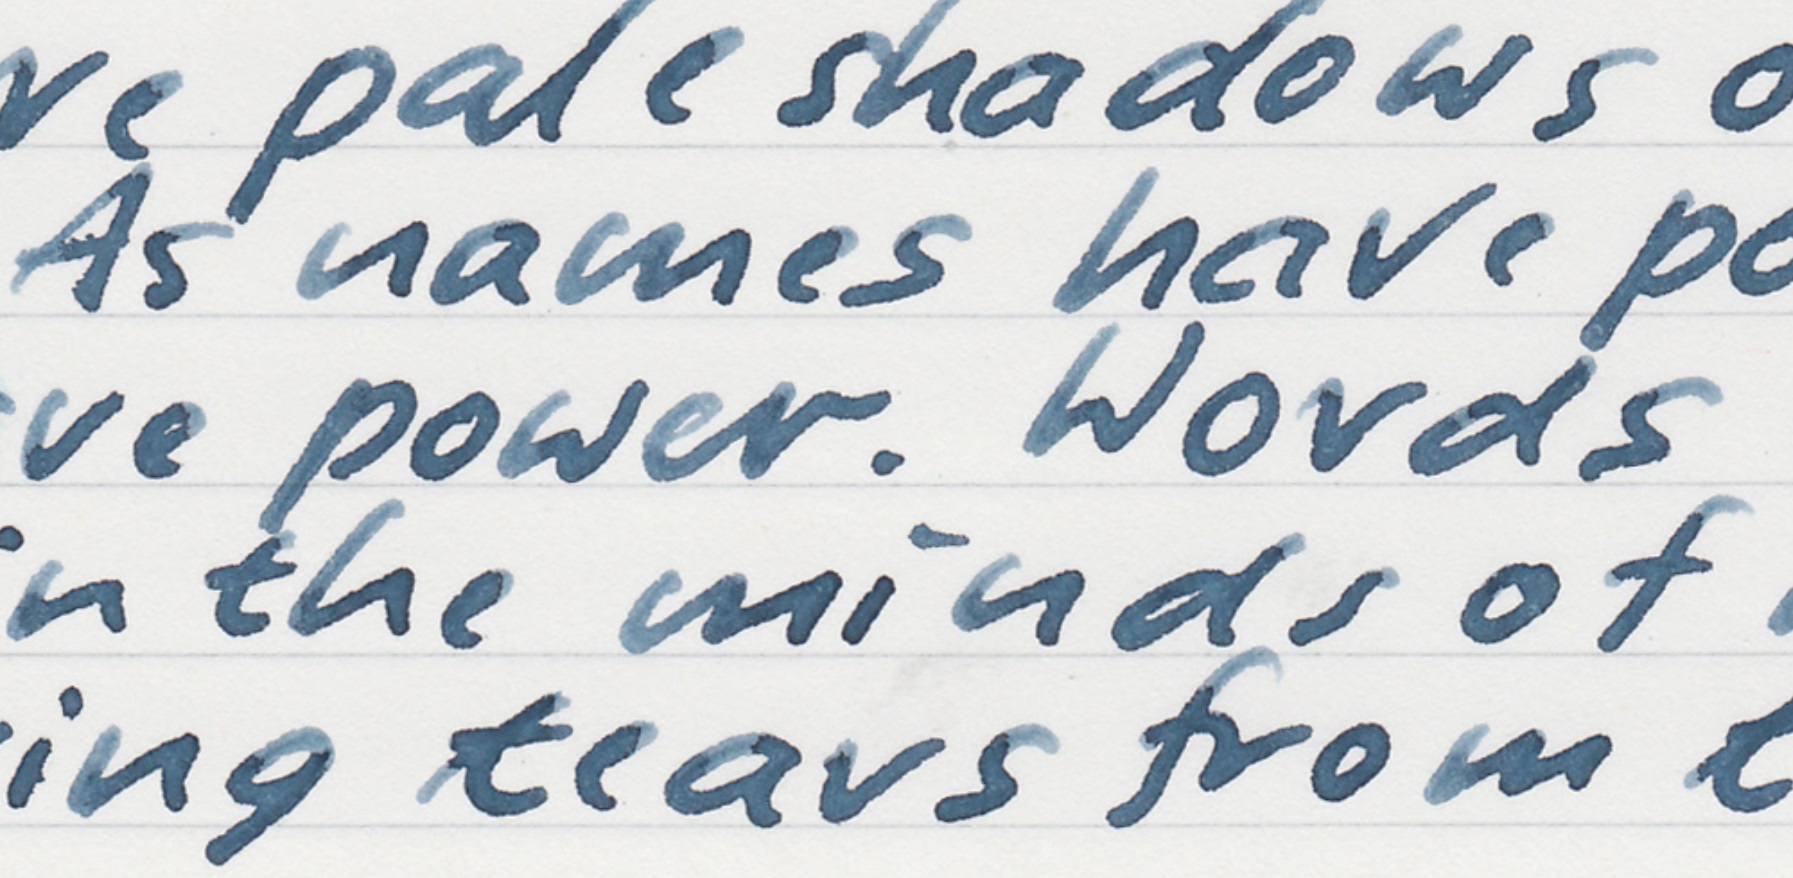 re pale shadows o
As names have po
ve power. Words
in the minds of
ing tears from t